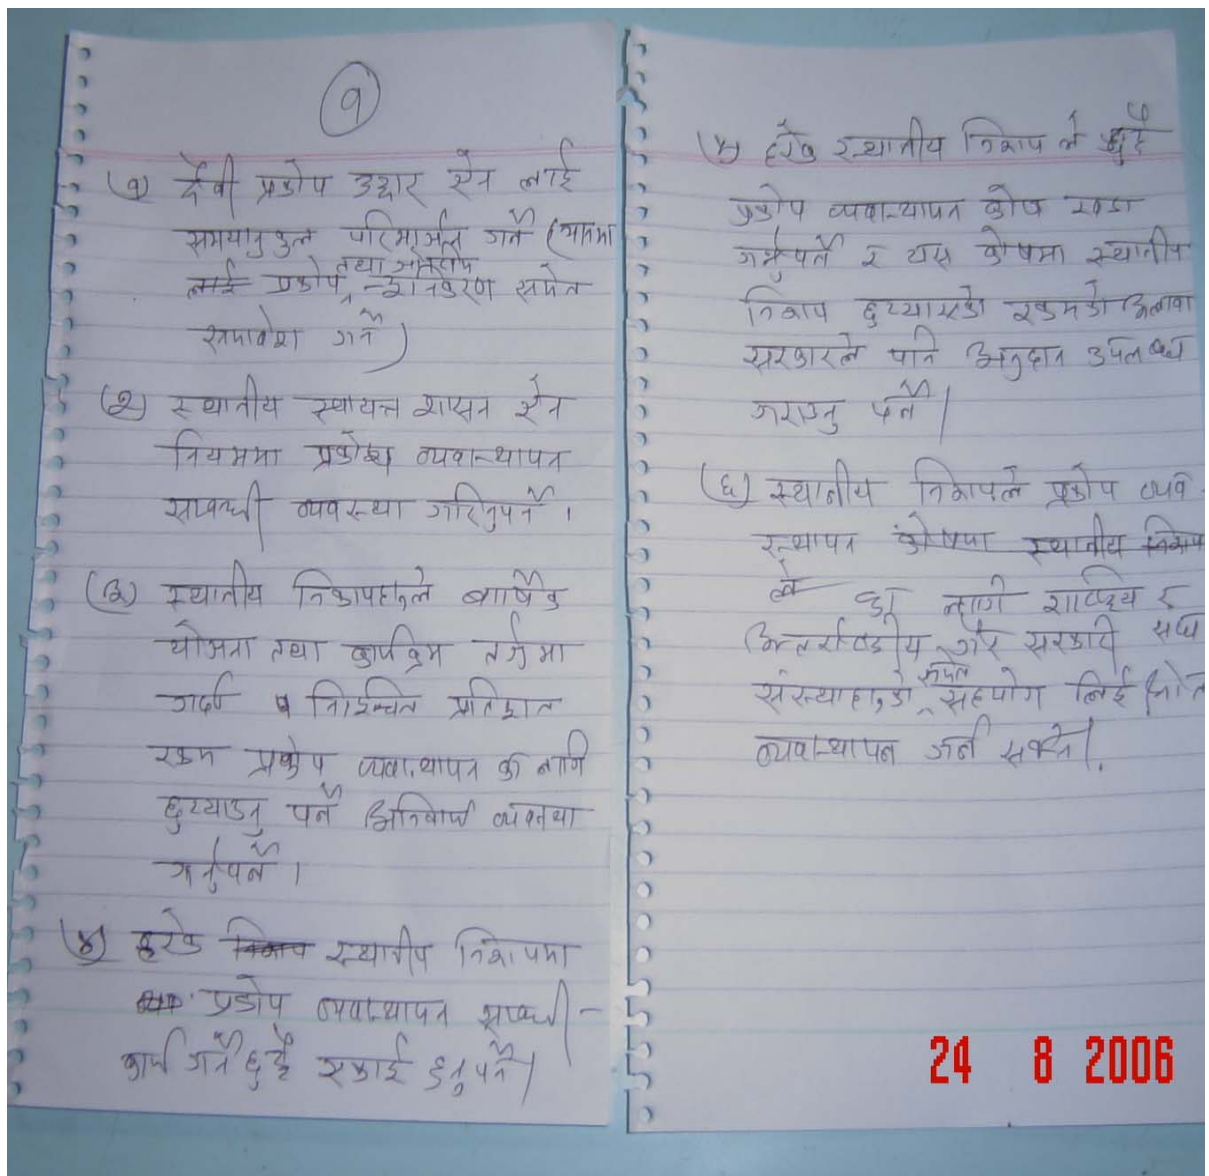 १
(१) दैवी प्रकोप उद्दार ऐन लाई
समयानुकुल परिमार्जन गर्ने
तथा
लाई प्रकोप न्यूनिकरण समेत
समावेश गर्ने)
(२) स्थानीय स्वायत्त शासन ऐन
नियममा प्रकोप व्यवस्थापन
सम्बन्धी व्यवस्था गरिनुपर्ने ।
(३) स्थानीय निकायहरुले बार्षिक
योजना तथा कार्यक्रम तर्जुमा
गर्दा निश्चित प्रतिशत
रकम प्रकोप व्यवस्थापन का लागि
छुट्याउनु पर्ने अनिवार्य व्यवस्था
गर्नुपर्ने ।
(४) हरेक निकाय स्थानीय निकायमा
प्रकोप व्यवस्थापन सम्बन्धी -
कार्य गर्ने छुट्टै एकाई हुनुपर्ने।
(५) हरेक स्थानीय निकाय ले छुट्टै
प्रकोप व्यवस्थापन कोष खडा
गर्नुपर्ने र यस कोषमा स्थानीय
निकाय छुट्याएको रकमको अलावा
सरकारले पनि अनुदान उपलब्ध
गराउनु पर्ने।
(६) स्थानीय निकायले प्रकोप व्यव-
स्थापन कोषमा स्थानीय निकाय
ले का लागि राष्ट्रिय र
अन्तर्राष्ट्रीय गैर सरकारी संघ
समेत
संस्थाहरुको सहयोग लिई स्रोत
व्यवस्थापन गर्न सक्ने।
24 8 2006